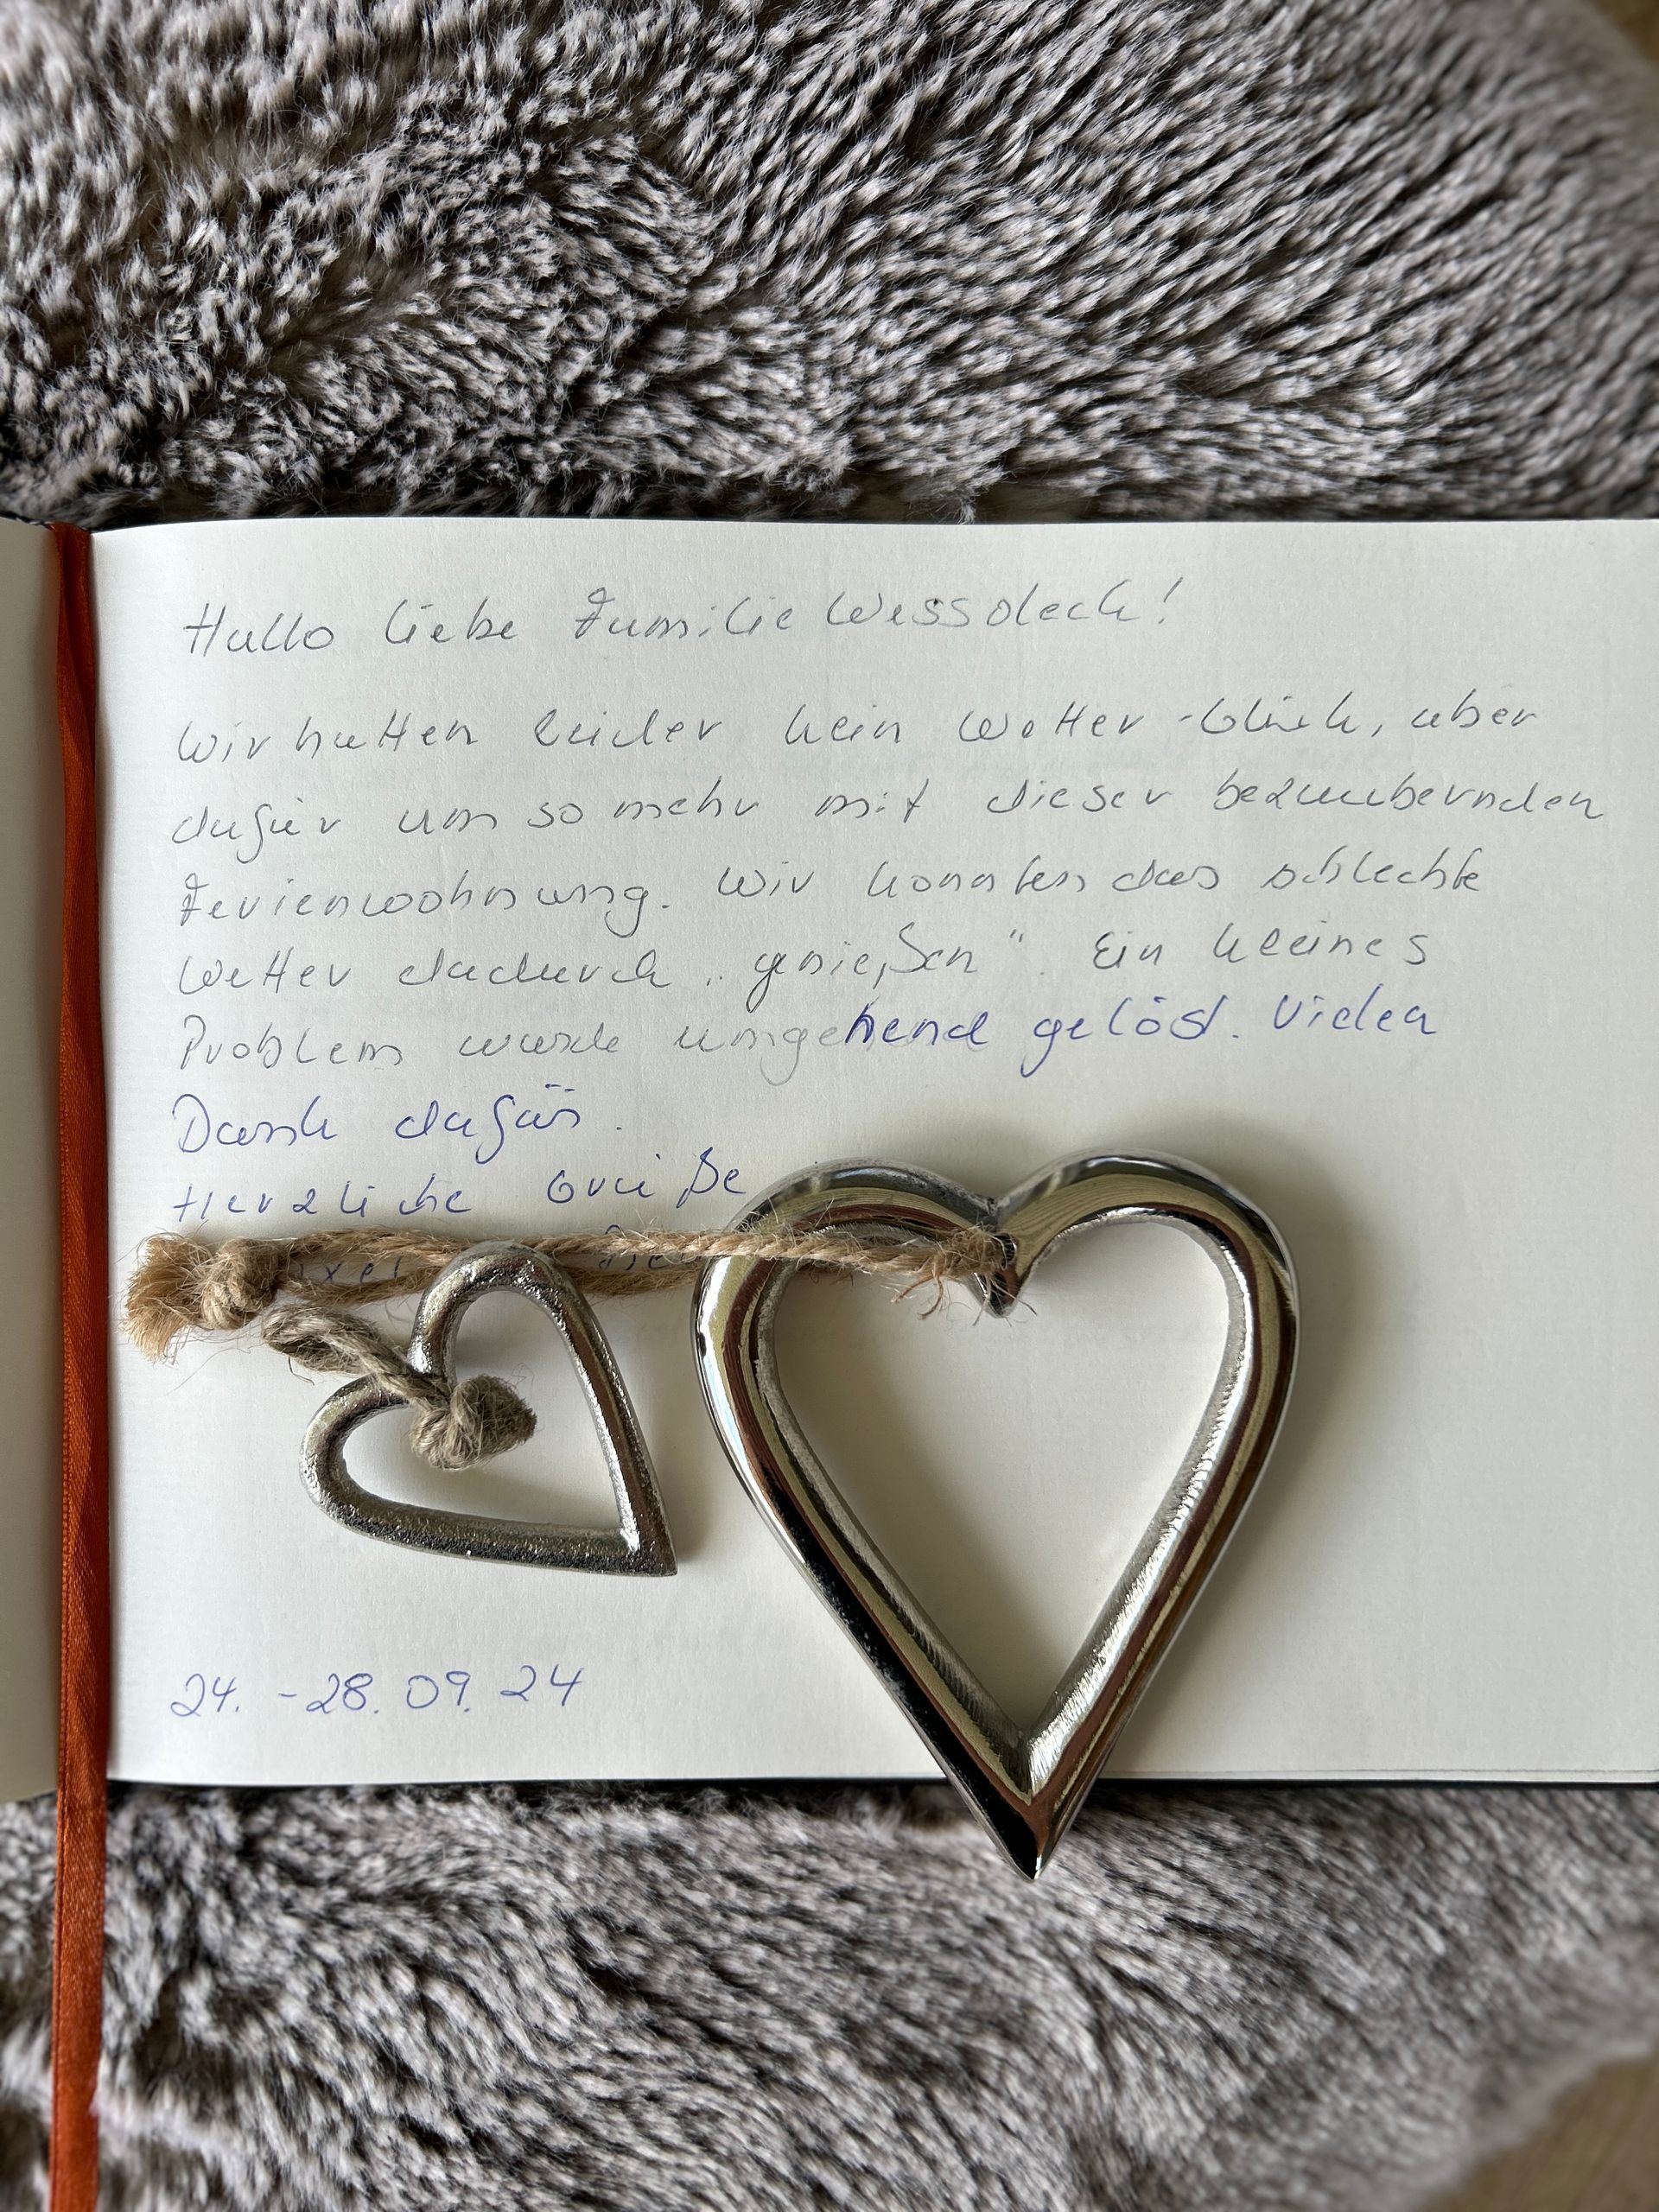 Hallo liebe Familie Wessoleck!
Wir hatten leider kein Wetter-Glück, aber
dafür um so mehr mit dieser bezaubernden
Ferienwohnung. Wir konnten das schlechte
Wetter dadurch „genießen“. Ein kleines
Problem wurde umgehend gelöst. Vielen
Dank dafür.
Herzliche Grüße
24. - 28. 09. 24